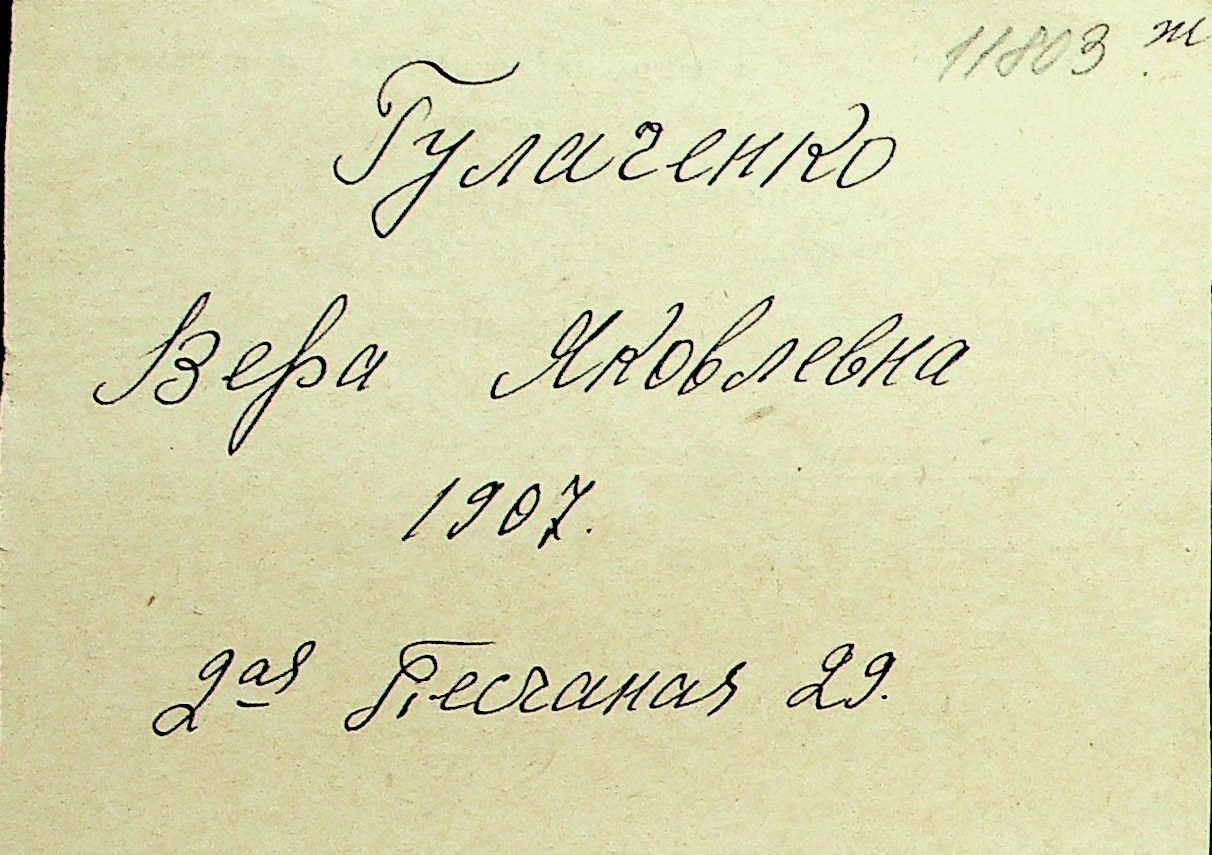 11803 ж
Гулаченко
Вера Яковлевна
1907.
2ая Песчаная 29.